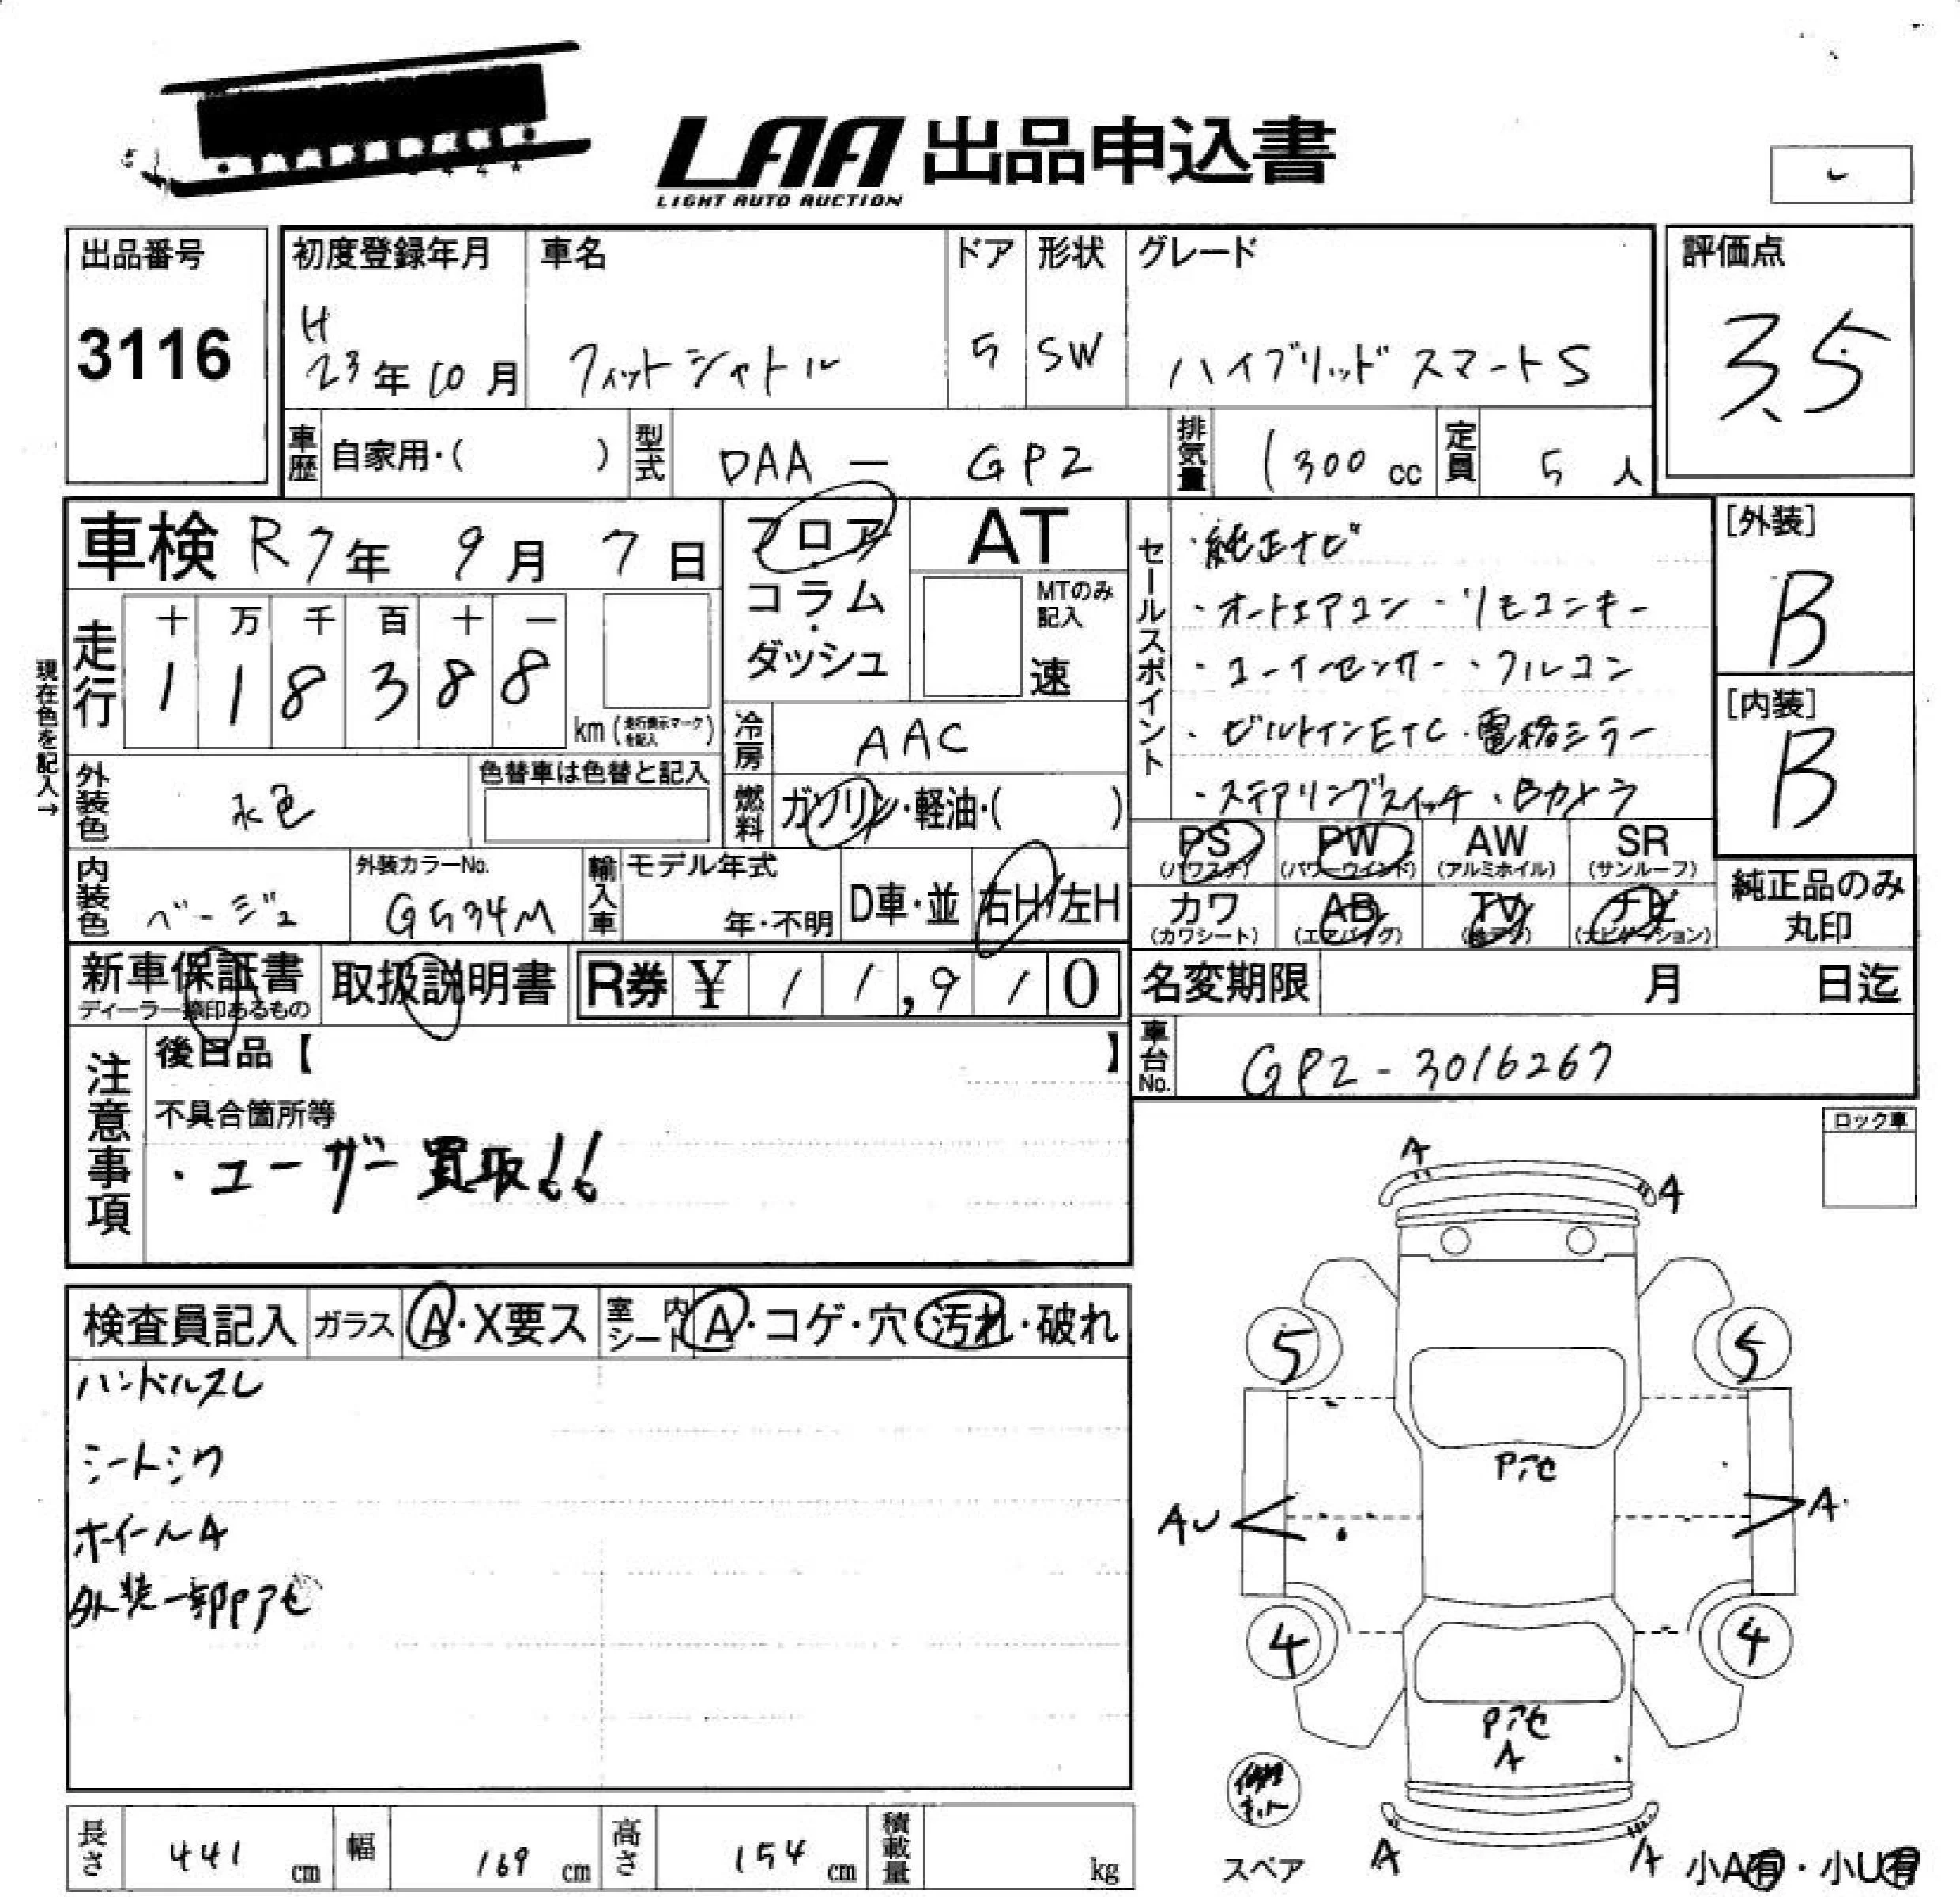 LAA 出品申込書
LIGHT AUTO AUCTION
出品番号
3116
初度登録年月
H
23年10月
車名
フィットシャトル
ドア
5
形状
SW
グレード
ハイブリッド スマートS
評価点
3.5
車歴 自家用・( )
型式 DAA - GP2
排気量 1300 cc
定員 5 人
車検 R7年 9月 7日
フロア
コラム
・
ダッシュ
AT
MTのみ
記入
速
走行
十 万 千 百 十 一
1 1 8 3 8 8
km (走行表示マークを記入)
現在色を記入→
冷房 AAC
外装色 水色
色替車は色替と記入
燃料 ガソリン・軽油・( )
内装色 ベージュ
外装カラーNo.
G534M
輸入車
モデル年式
年・不明
D車・並
右H/左H
セールスポイント
・純正ナビ
・オートエアコン ・リモコンキー
・コーナーセンサー ・フルコン
・ビルトインETC・電格ミラー
・ステアリングスイッチ ・Bカメラ
[外装]
B
[内装]
B
PS (パワステ)
PW (パワーウインド)
AW (アルミホイル)
SR (サンルーフ)
カワ (カワシート)
AB (エアバッグ)
TV (地デジ)
ナビ (ナビゲーション)
純正品のみ
丸印
新車保証書
ディーラー捺印あるもの
取扱説明書
R券 ¥ 11,910
名変期限 月 日迄
車台No. GP2-3016267
注意事項
後日品【 】
不具合箇所等
・ユーザー買取!!
ロック車
検査員記入
ガラス A・X要ス
室内シート A・コゲ・穴・汚れ・破れ
ハンドルスレ
シートシワ
ホイールA
外装一部Pアセ
A
A
5
5
Pアセ
AU
A
4
4
Pアセ
A
修理キット
スペア
A
A
小A有・小U有
長さ 441 cm
幅 169 cm
高さ 154 cm
積載量 kg